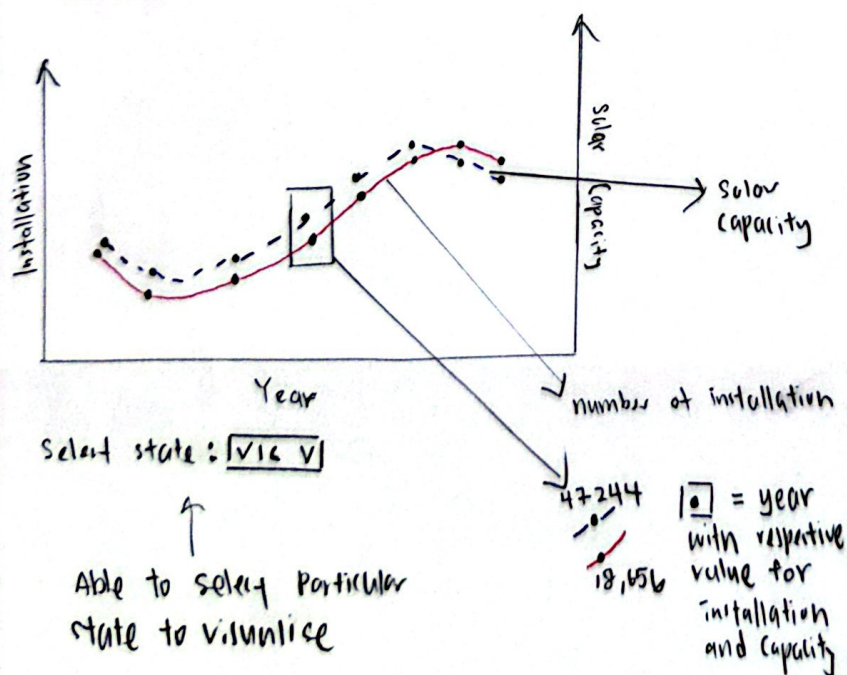 Installation
Solar Capacity
Solar
capacity
Year
number of installation
Select state: VIC V
Able to select particular
state to visualise
47244
18,656
= year
with respective
value for
installation
and capacity